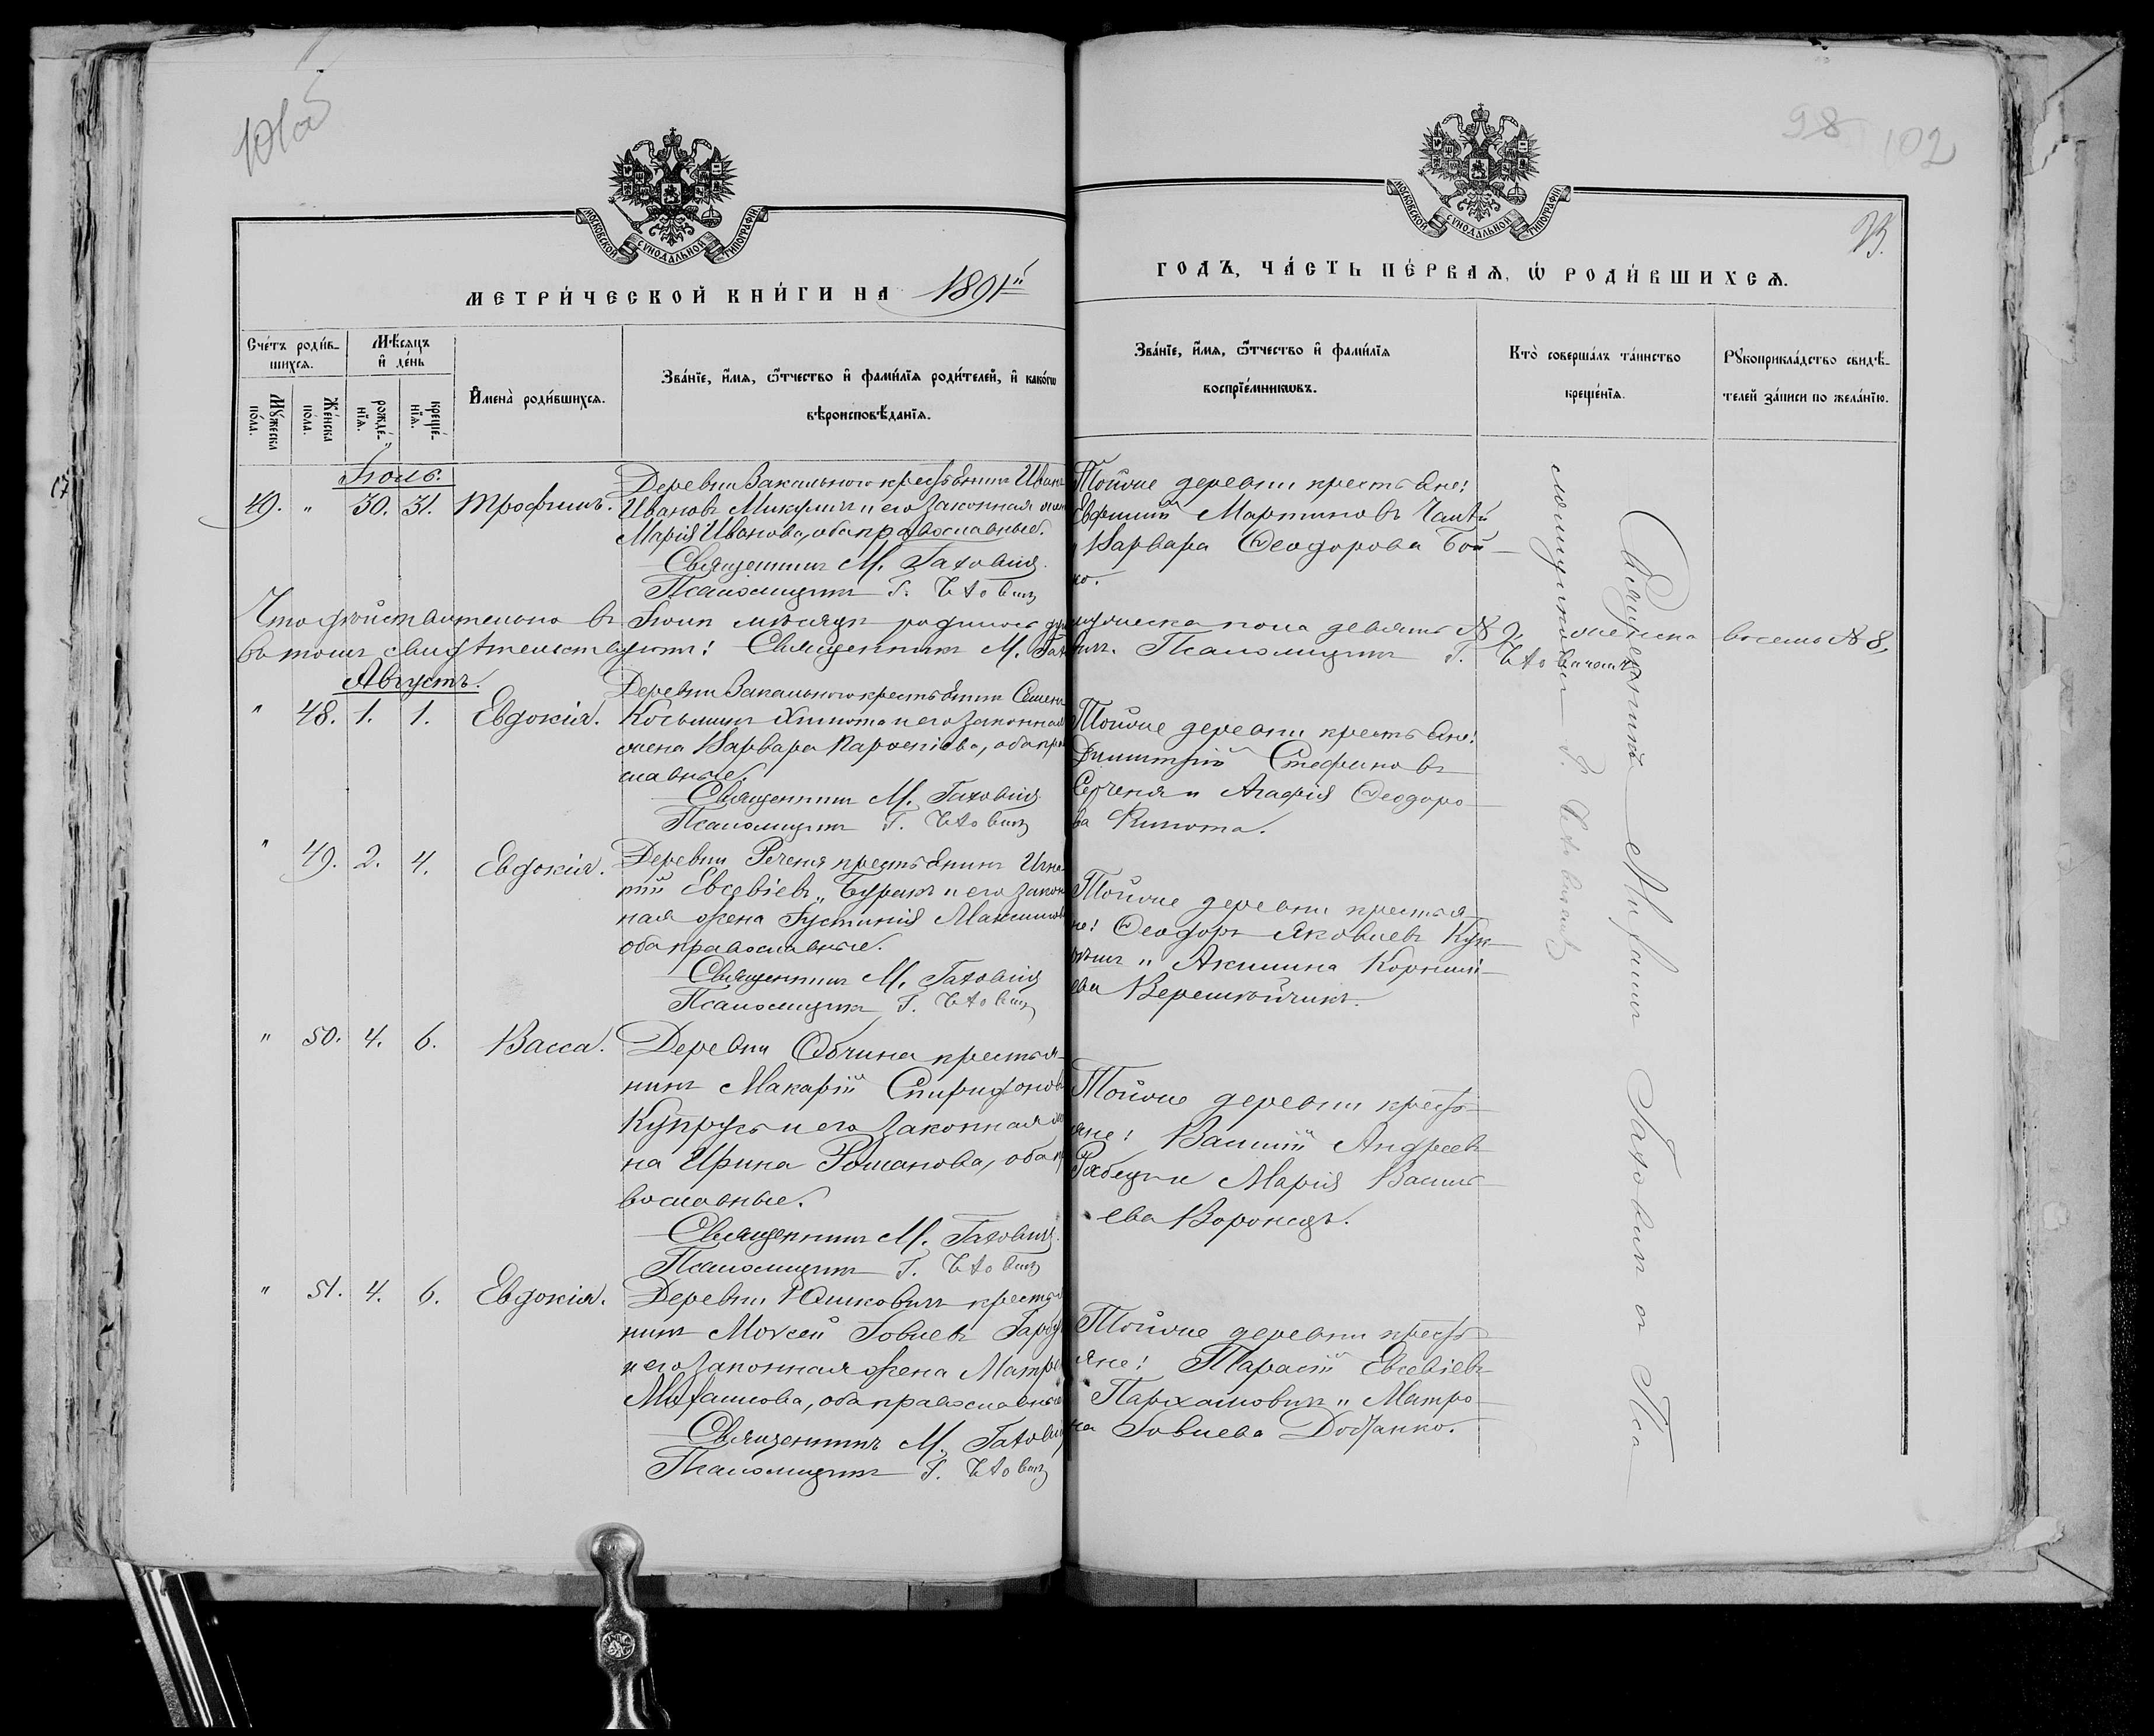 101об
98 102
23.
МОСКОВСКОЙ СѴНОДАЛЬНОЙ ТИПОГРАФІИ
МОСКОВСКОЙ СѴНОДАЛЬНОЙ ТИПОГРАФІИ
МЕТРИ́ЧЕСКОЙ КНИ́ГИ НА 1891й
ГОДЪ, ЧА́СТЬ ПЕ́РВАѦ, Ѡ҆ РОДИ́ВШИХСѦ.
Сче́тъ роди́в-
шихсѧ.
Мꙋ́жеска по́ла.
Же́нска по́ла.
Мѣ́сѧцъ и҆ де́нь
рожде́-
нїѧ.
креще́-
нїѧ.
И҆мена̀ роди́вшихсѧ.
Зва́нїе, и҆́мѧ, ѻ҆́тчество и҆ фами́лїѧ роди́телей, и҆ како́гѡ
вѣроисповѣ́данїѧ.
Зва́нїе, и҆́мѧ, ѻ҆́тчество и҆ фами́лїѧ
воспрїе́мникѡвъ.
Кто̀ соверша́лъ та́инство
креще́нїѧ.
Рꙋкоприкла́дство свидѣ́-
телей за́писи по жела́нїю.
Іюль.
49. " 30. 31. Трофимъ.
Деревни Закального крестьянинъ Иванъ
Ивановъ Микуличъ и его законная жен
Марія Иванова, оба православные.
Священникъ М. Гахович
Псаломщикъ Г.
Тойже деревни крестьяне:
Евфимій Мартиновъ
и Варвара Ѳеодорова Бой-
ко.
Что дѣйствительно въ Іюлѣ мѣсяцѣ родилось мужеска пола девять № 9, женска восемь № 8,
въ томъ свидѣтельствуютъ: Священникъ М. Гахович. Псаломщикъ Г.
Августъ.
" 48. 1. 1. Евдокія.
Деревни Закального крестьянинъ Семенъ
Косьминъ и его законная
жена Варвара Парѳеніева, оба пра
славные.
Священникъ М. Гахович
Псаломщикъ Г.
Тойже деревни крестьяне:
Димитрій Стефановъ
и Агафія Ѳеодоро-
ва
" 49. 2. 4. Евдокія.
Деревни Реченя крестьянинъ Игна
тій Евсевіевъ Буракъ и его закон
ная жена Іустинія Максимова
оба православные.
Священникъ М. Гахович
Псаломщикъ Г.
Тойже деревни крестья-
не: Ѳеодоръ Яковлевъ
и Акилина Корнилі-
ева Веремейчикъ.
" 50. 4. 6. Васса.
Деревни Обчина крестья-
нинъ Макарій Спиридоновъ
Купрусь и его законная же
на Ирина Романова, оба пр
вославные.
Священникъ М. Гахович
Псаломщикъ Г.
Тойже деревни кресть-
яне: Василій Андреевъ
и Марія Василь-
ева Воронецъ.
" 51. 4. 6. Евдокія.
Деревни Юшковичъ крестья
нинъ Моѵсей Іовлевъ
и его законная жена Матре
Михаилова, оба православные
Священникъ М. Гахович
Псаломщикъ Г.
Тойже деревни кресть-
яне: Тарасій Евсевіевъ
Пархамовичъ и Матро-
на Іовлева
Священникъ Михаилъ Гахович съ Пса-
ломщикомъ Г.